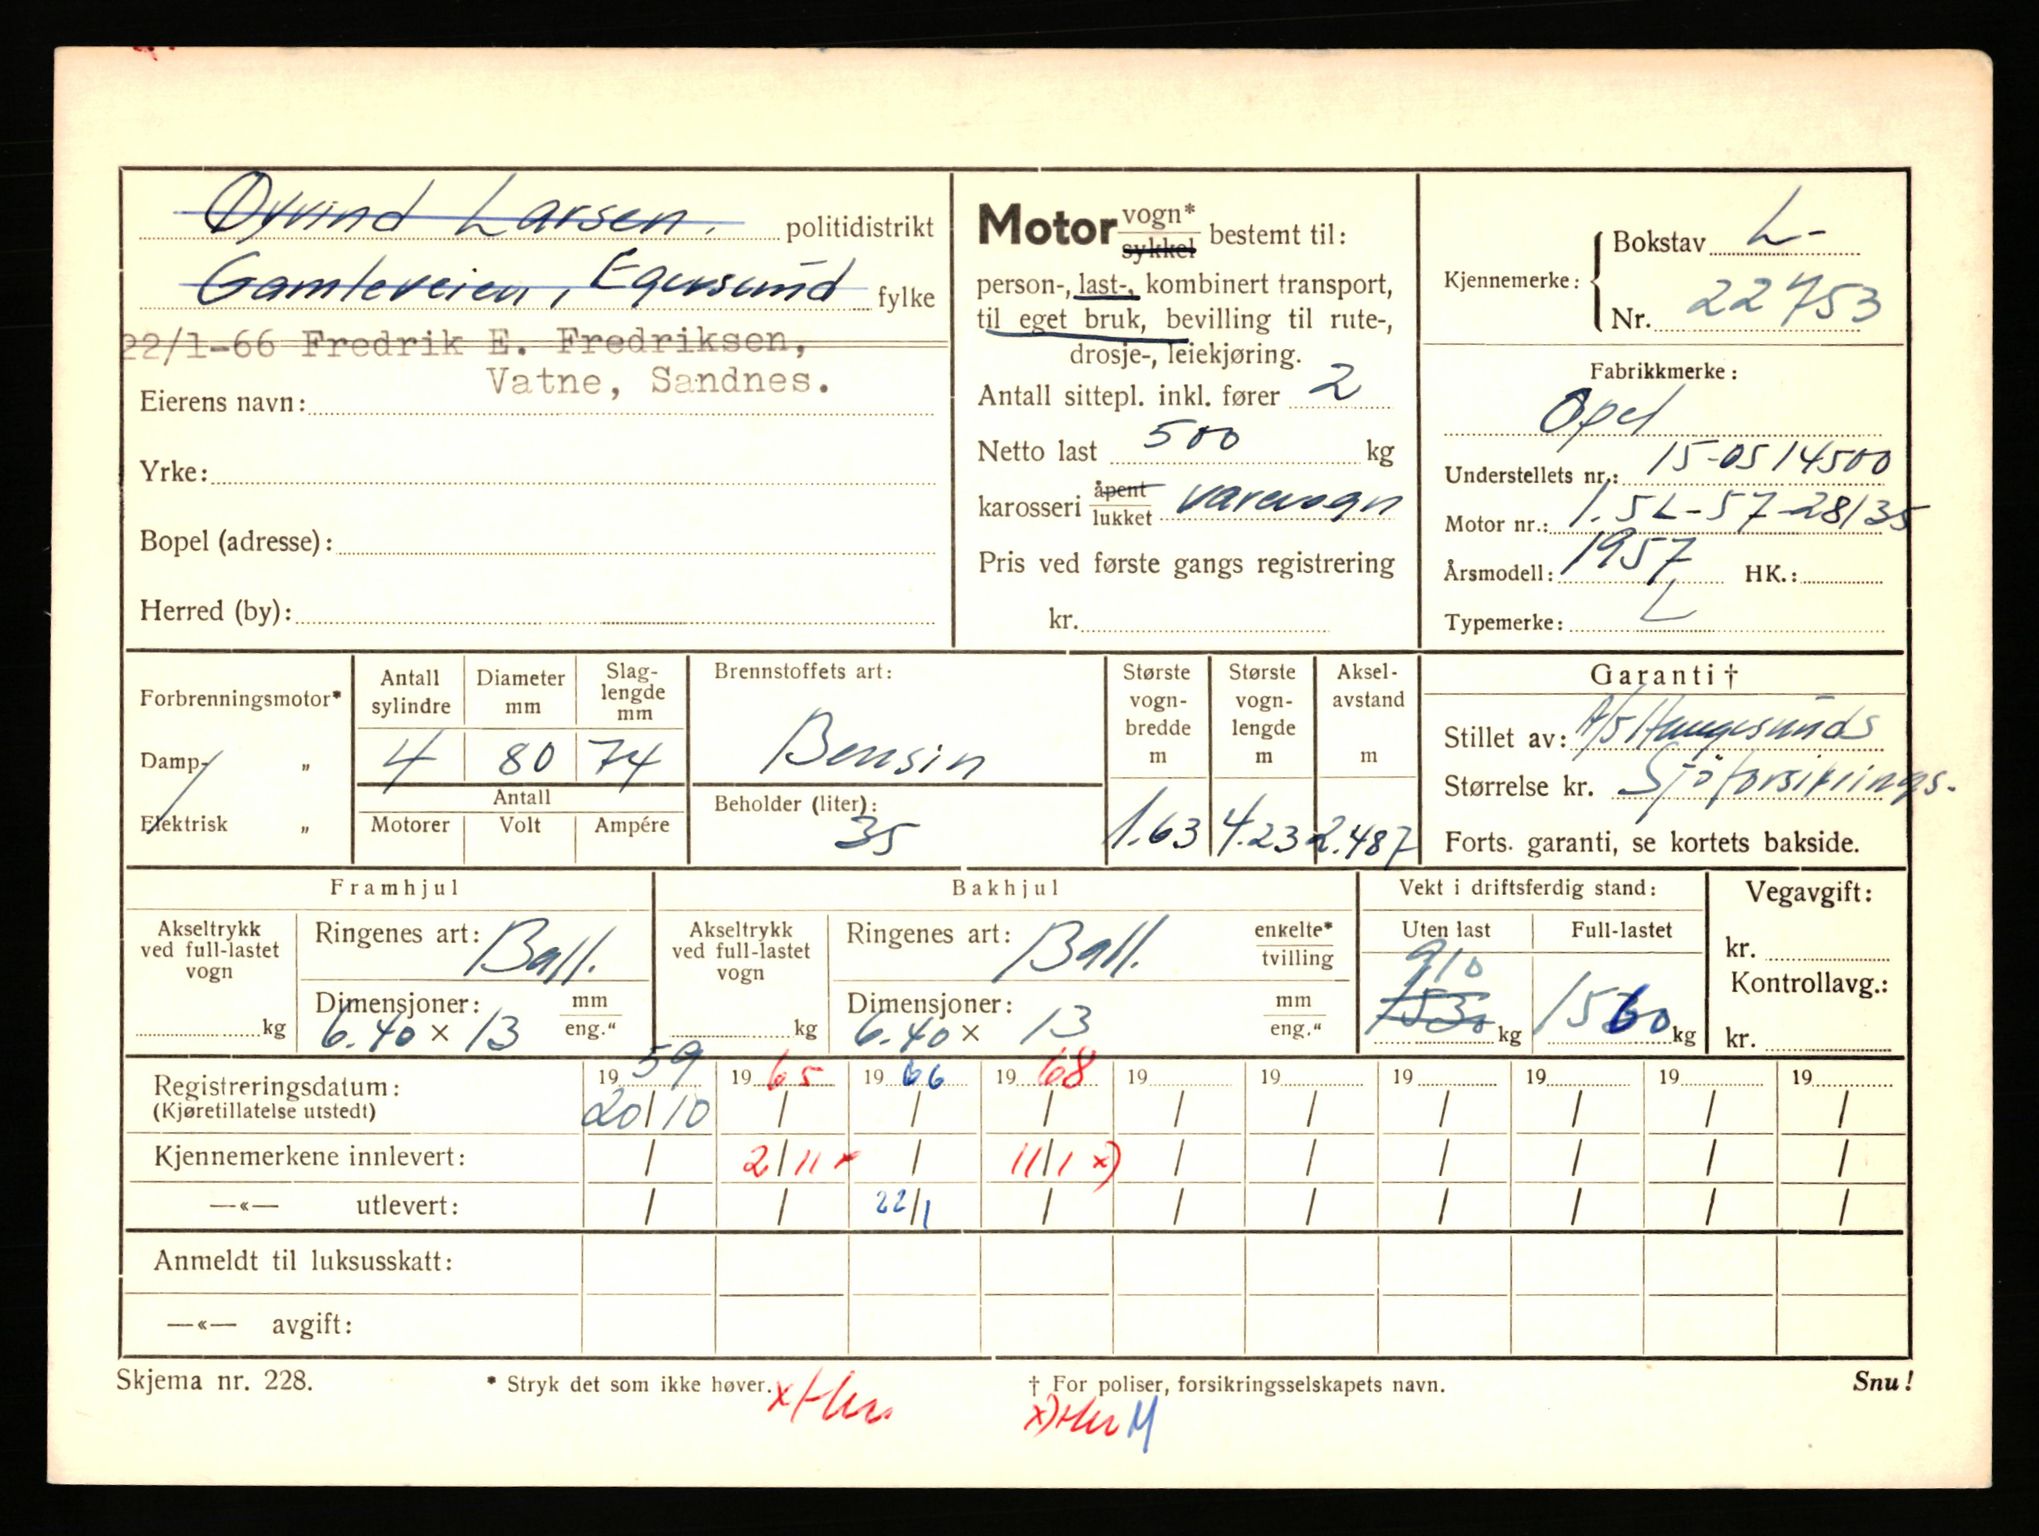 Øyvind Larsen. politidistrikt
Gamleveien, Egersund fylke
22/1-66 Fredrik E. Fredriksen,
Vatne, Sandnes.
Eierens navn:
Yrke:
Bopel (adresse):
Herred (by):
Motor vogn* sykkel bestemt til:
person-, last-, kombinert transport,
til eget bruk, bevilling til rute-,
drosje-, leiekjøring.
Antall sittepl. inkl. fører 2
Netto last 500 kg
karosseri åpent lukket varevogn
Pris ved første gangs registrering
kr.
Kjennemerke: Bokstav L-
Nr. 22753
Fabrikkmerke:
Opel
Understellets nr.: 15-0514500
Motor nr.: 1.5L-57-28135
Årsmodell: 1957 HK.:
Typemerke: L
Forbrenningsmotor*
Damp- „
Elektrisk „
Antall sylindre
4
Diameter mm
80
Slag-lengde mm
74
Antall
Motorer Volt Ampére
Brennstoffets art:
Bensin
Beholder (liter):
35
Største vogn-bredde m
1.63
Største vogn-lengde m
4.23
Aksel-avstand m
2.487
Garanti †
Stillet av: A/S Haugesunds
Størrelse kr. Sjöforsikrings-
Forts. garanti, se kortets bakside.
Framhjul
Akseltrykk ved full-lastet vogn
kg
Ringenes art: Ball.
Dimensjoner: mm eng."
6.40 × 13
Bakhjul
Akseltrykk ved full-lastet vogn
kg
Ringenes art: Ball. enkelte* tvilling
Dimensjoner: mm eng."
6.40 × 13
Vekt i driftsferdig stand:
Uten last Full-lastet
910
1530 kg 1560 kg
Vegavgift:
kr.
Kontrollavg.:
kr.
Registreringsdatum: 19 59 19 65 19 66 19 68 19 19 19 19 19 19
(Kjøretillatelse utstedt) 20/10 / / / / / / / / /
Kjennemerkene innlevert: / 2/11 x / 11/1 x) / / / / / /
—«— utlevert: / / 22/1 / / / / / / /
Anmeldt til luksusskatt:
—«— avgift:
Skjema nr. 228. * Stryk det som ikke høver. † For poliser, forsikringsselskapets navn. Snu!